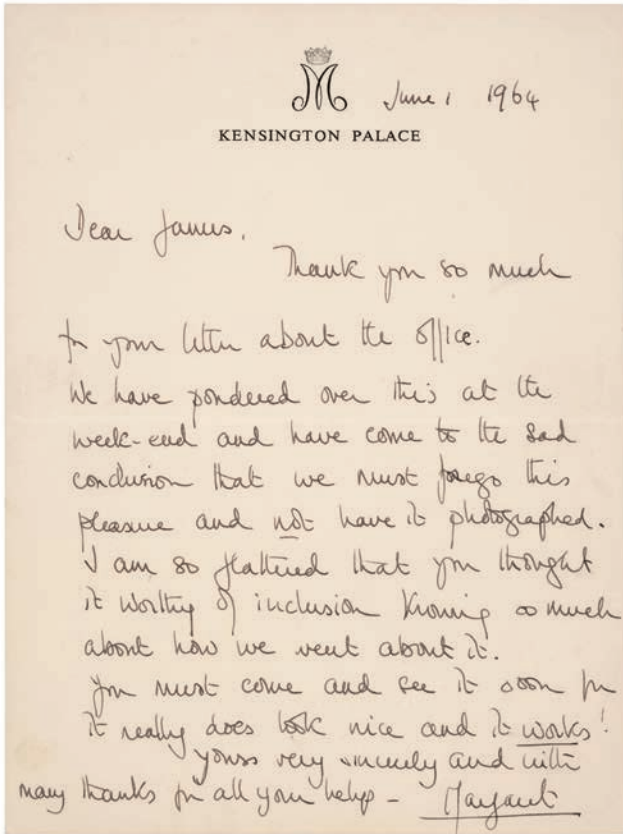 M June 1 1964
KENSINGTON PALACE
Dear James,
Thank you so much
for your letter about the office.
We have pondered over this at the
week-end and have come to the sad
conclusion that we must forego this
pleasure and not have it photographed.
I am so flattered that you thought
it worthy of inclusion knowing so much
about how we went about it.
You must come and see it soon for
it really does look nice and it works!
yours very sincerely and with
many thanks for all your help - Margaret